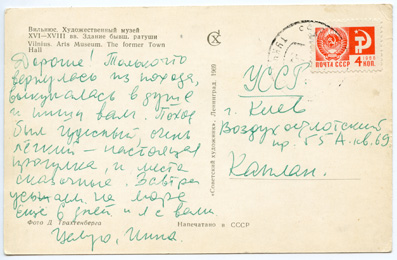 Вильнюс. Художественный музей
XVI—XVIII вв. Здание бывш. ратуши
Vilnius. Arts Museum. The former Town
Hall
Дорогие! Только что
вернулась из похода,
выкупалась в душе
и пишу вам. Поход
был чудесный, очень
лёгкий — настоящая
прогулка, и места
сказочные. Завтра
уезжаем на море
ещё 6 дней и я с вами.
Целую, Инна.
Фото Д. Трахтенберга
Напечатано в СССР
«Советский художник», Ленинград, 1969
ПОЧТА
СССР
4
КОП.
1966
УССР
г. Киев
Воздухофлотский
пр. 55А кв. 69
Каплан.